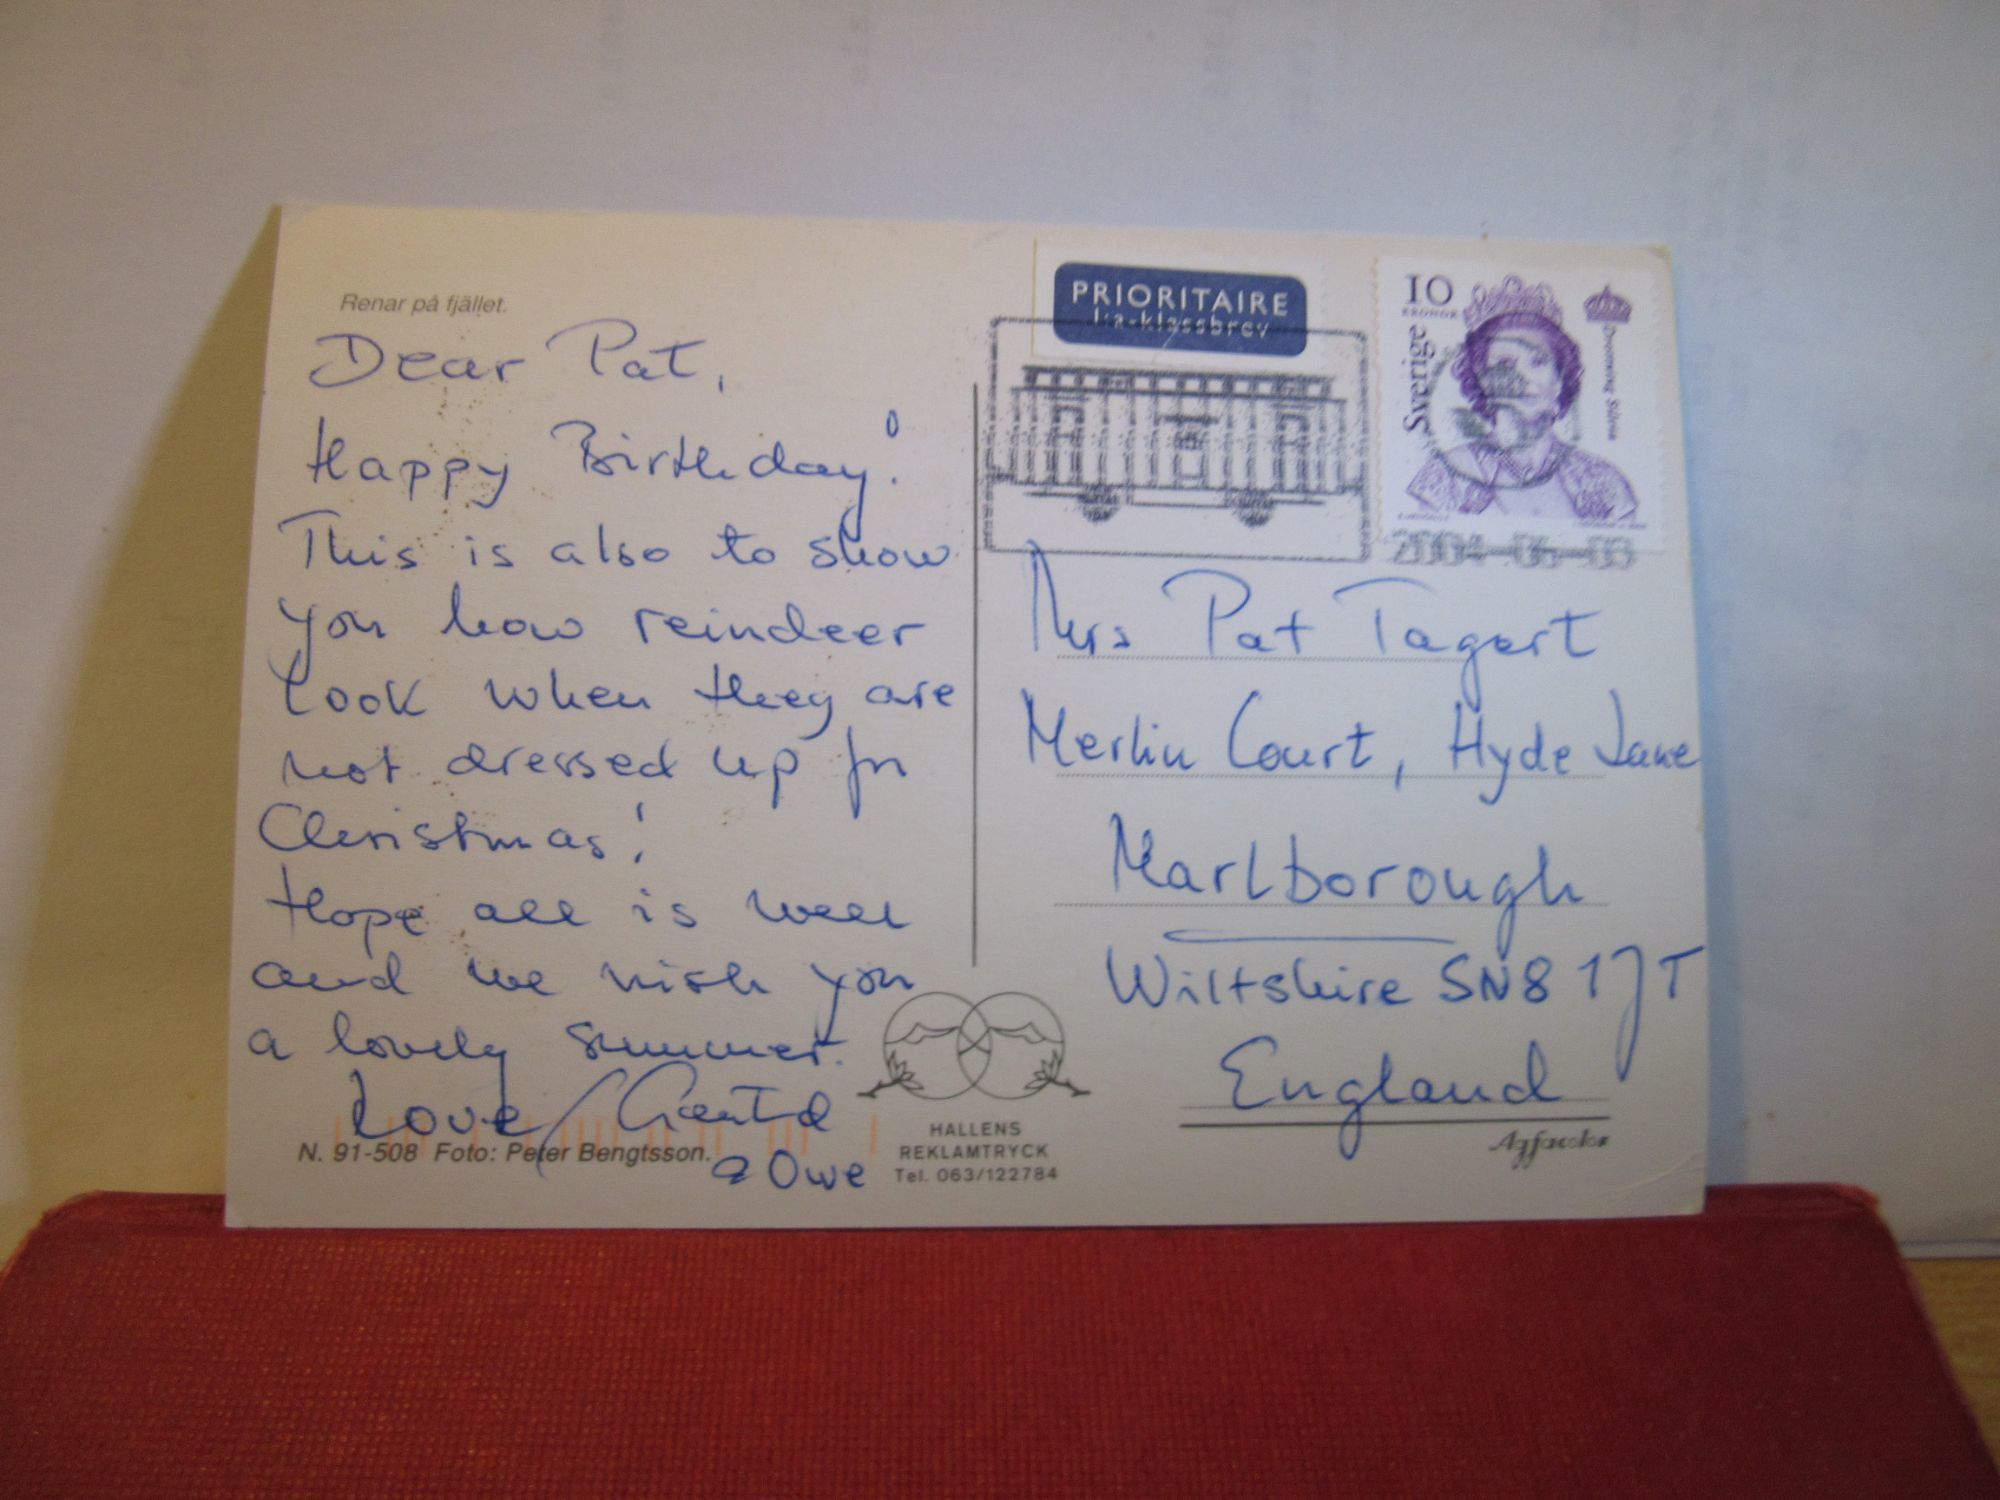 Renar på fjället.
Dear Pat,
Happy Birthday!
This is also to show
you how reindeer
look when they are
not dressed up for
Christmas!
Hope all is well
and we wish you
a lovely summer.
Love
& Owe
N. 91-508 Foto: Peter Bengtsson.
HALLENS
REKLAMTRYCK
Tel. 063/122784
PRIORITAIRE
1:a-klassbrev
10
KRONOR
Sverige
Drottning Silvia
2004-06-03
Mrs Pat Tagart
Merlin Court, Hyde Lane
Marlborough
Wiltshire SN8 1JT
England
Agfacolor